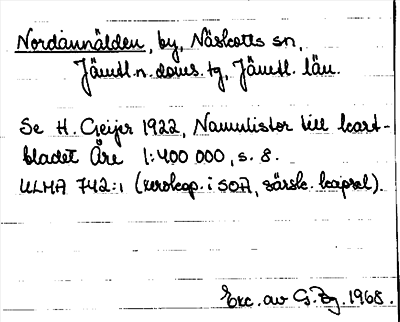 Nordannälden, by, Näskotts sn,
Jämtl. n. doms. tg, Jämtl. län.
Se H. Geijer 1922, Namnlistor till kart-
bladet Åre 1:400 000, s. 8.
ULMA 742:1 (xerokop. i SOA, särsk. kapsel).
Exc. av G. Bg. 1968.